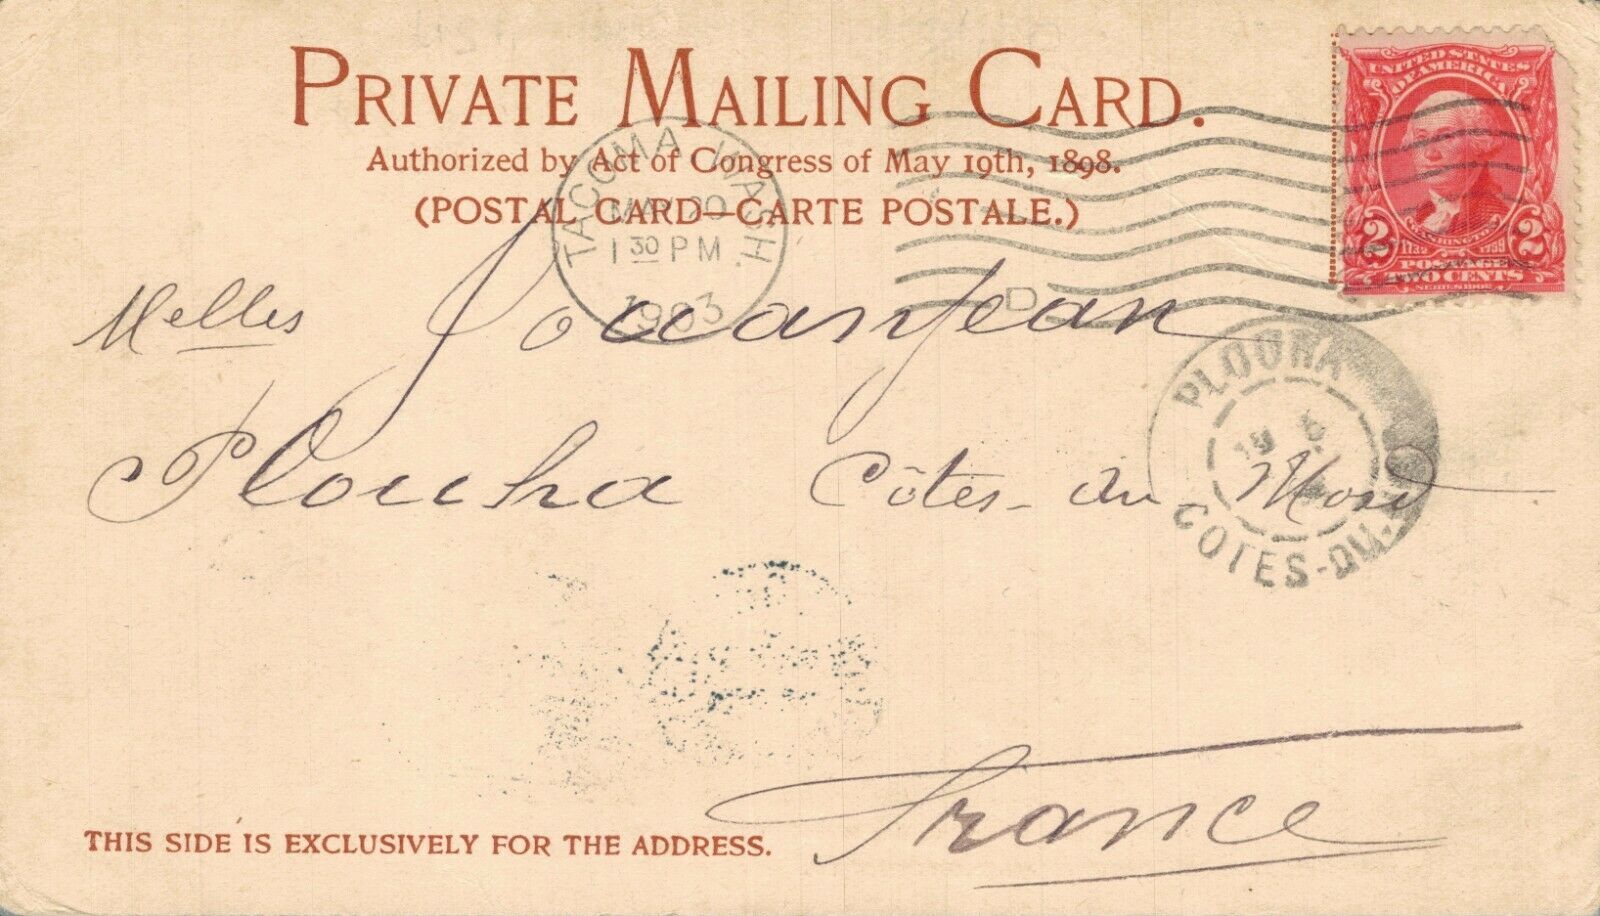 PRIVATE MAILING CARD.
Authorized by Act of Congress of May 19th, 1898.
(POSTAL CARD—CARTE POSTALE.)
UNITED STATES
OF AMERICA
WASHINGTON
1732 1799
POSTAGE
2 TWO CENTS 2
TACOMA WASH.
MAY 20
1 30 PM
1903
D
Melles
Plouha Côtes-du-Nord
France
PLOUHA
COTES-DU-
THIS SIDE IS EXCLUSIVELY FOR THE ADDRESS.